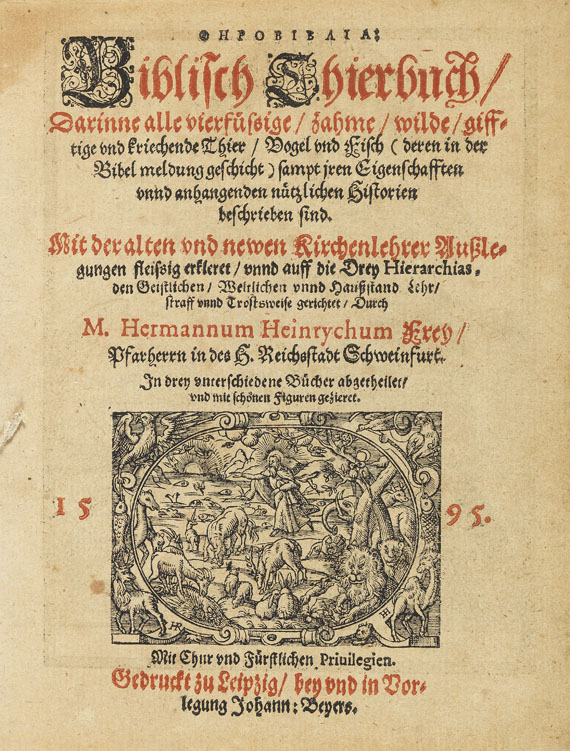 ΘΗΡΟΒΙΒΛΙΑ:
Biblisch Thierbuch/
Darinne alle vierfüssige/ zahme/ wilde/ giff-
tige vnd kriechende Thier/ Vogel vnd Fisch (deren in der
Bibel meldung geschicht) sampt jren Eigenschafften
vnnd anhangenden nützlichen Historien
beschrieben sind.
Mit der alten vnd newen Kirchenlehrer Außle-
gungen fleissig erkleret/ vnnd auff die Drey Hierarchias,
den Geistlichen/ Weltlichen vnnd Haußstand Lehr/
straff vnnd Trostsweise gerichtet/ Durch
M. Hermannum Heinrychum Frey/
Pfarherrn in des H. Reichsstadt Schweinfurt.
In drey vnterschiedene Bücher abgetheilet/
vnd mit schönen Figuren gezieret.
15 95.
HR
HF
Mit Chur vnd Fürstlichen Priuilegien.
Gedruckt zu Leipzig/ bey vnd in Vor-
legung Johann: Beyers.